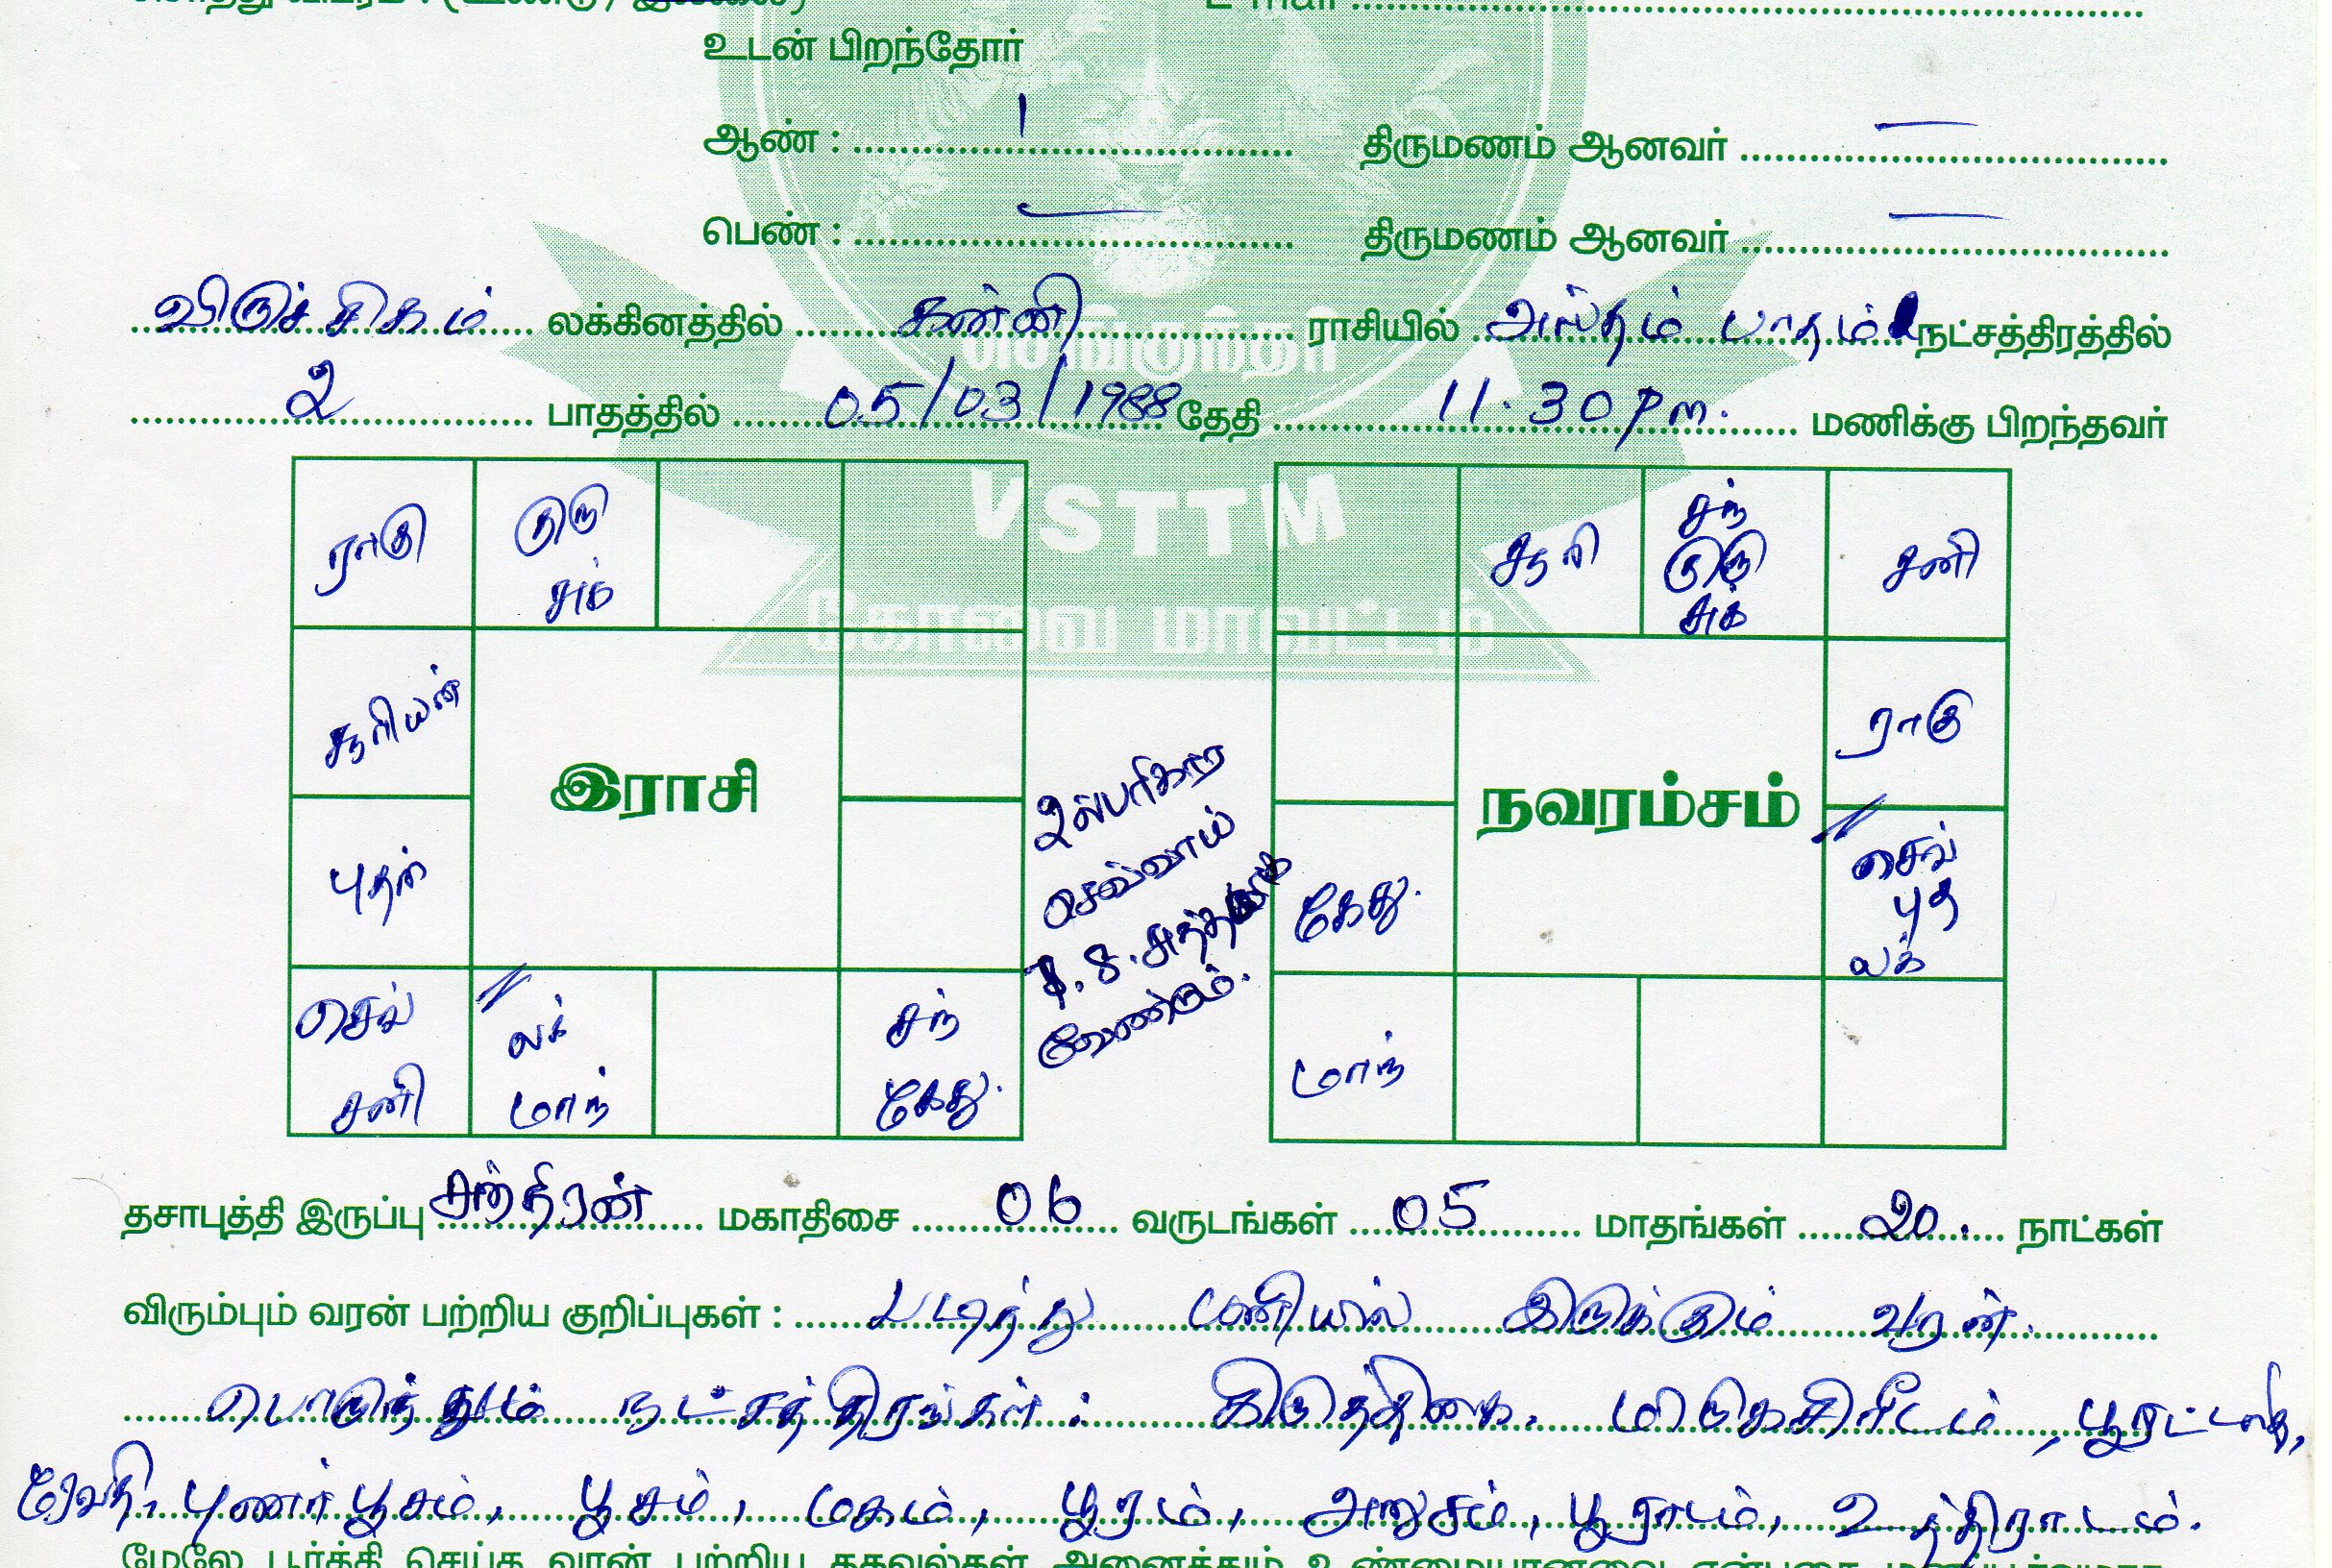 உடன் பிறந்தோர்
ஆண் : 1 திருமணம் ஆனவர் —
பெண் : — திருமணம் ஆனவர் —
விருச்சிகம் லக்கினத்தில் கன்னி ராசியில் அஸ்தம் பாதம் நட்சத்திரத்தில்
2 பாதத்தில் 05/03/1988 தேதி 11.30 pm. மணிக்கு பிறந்தவர்
VSTTM
கோவை மாவட்டம்
ராகு
குரு
சுக்
சூரியன்
இராசி
புதன்
செவ்
சனி
லக்
மாந்
சந்
கேது.
செவ்வாய்
வேண்டும்.
சூரி
சந்
குரு
சுக்
சனி
ராகு
நவரம்சம்
கேது.
செவ்
புத
லக்
மாந்
தசாபுத்தி இருப்பு சந்திரன் மகாதிசை 06 வருடங்கள் 05 மாதங்கள் 20. நாட்கள்
விரும்பும் வரன் பற்றிய குறிப்புகள் : படித்து பணியில் இருக்கும் வரன்.
பொருந்தும் நட்சத்திரங்கள் : கிருத்திகை, மிருகசிரீடம், பூரட்டாதி,
ரேவதி, புணர்பூசம், பூசம், மகம், பூரம், அனுசம், பூராடம், உத்திராடம்.
மேலே பூர்த்தி செய்த வரன் பற்றிய தகவல்கள் அனைத்தும் உண்மையானவை